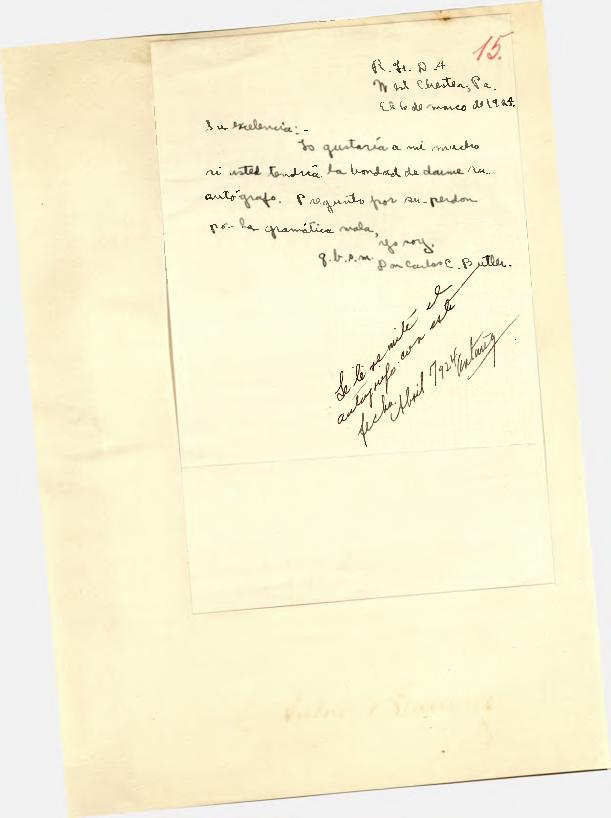 15.
R. F. D. 4
West Chester, Pa.
El 6 de março de 1924.
Su excelencia:-
Lo gustaría a mi mucho
si usted tendría la bondad de darme su
autógrafo. Pregunto por su perdon
por la gramática mala,
yo soy,
q.b.s.m.
Don Carlos C. Butler.
Se le remité el
autógrafo con este
fecha. Abril 7/924